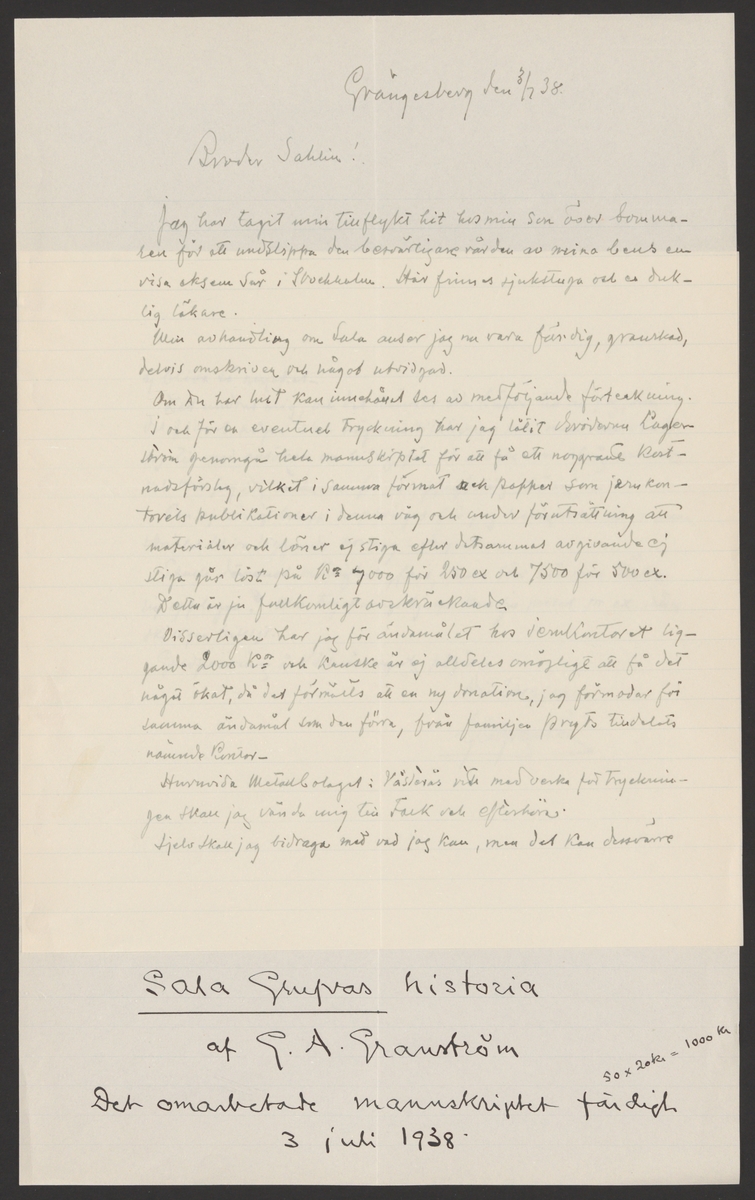 Grängesberg den 3/7 38.
Broder Sahlin!
Jag har tagit min tillflykt hit hos min son över somma-
ren för att undslippa den besvärligare vården av mina bens en-
visa eksem sår i Stockholm. Här finnes sjukstuga och en duk-
lig läkare.
Min avhandling om Sala anser jag nu vara färdig, granskad,
delvis omskriven och något utvidgad.
Om Du har lust kan innehållet ses av medföljande förteckning.
I och för en eventuell tryckning har jag låtit Bröderna Lager-
ström genomgå hela manuskriptet för att få ett noggrant kost-
nadsförslag, vilket i samma format och papper som jernkon-
torets publikationer i denna väg och under förutsättning att
materialer och löner ej stiga efter detsammas avgivande ej
stiga går löst på Kr 7000 för 250 ex och 7500 för 500 ex.
Detta är ju fullkomligt avskräckande
Visserligen har jag för ändamålet hos Jernkontoret lig-
gande 2000 Kr och kanske är ej alldeles omöjligt att få det
något ökat, då det förmäls att en ny donation, jag förmodar för
samma ändamål som den förra, från familjen Prytz tilldelats
nämnde Kontor-
Huruvida Metallbolaget i Västerås vill medverka för trycknin-
gen skall jag vända mig till Falk och efterhöra.
Sjelv skall jag bidraga med vad jag kan, men det kan dessvärre
Sala Grufvas historia
af G. A. Granström
50 x 20 kr = 1000 Kr
Det omarbetade mannskriptet färdigt
3 juli 1938.